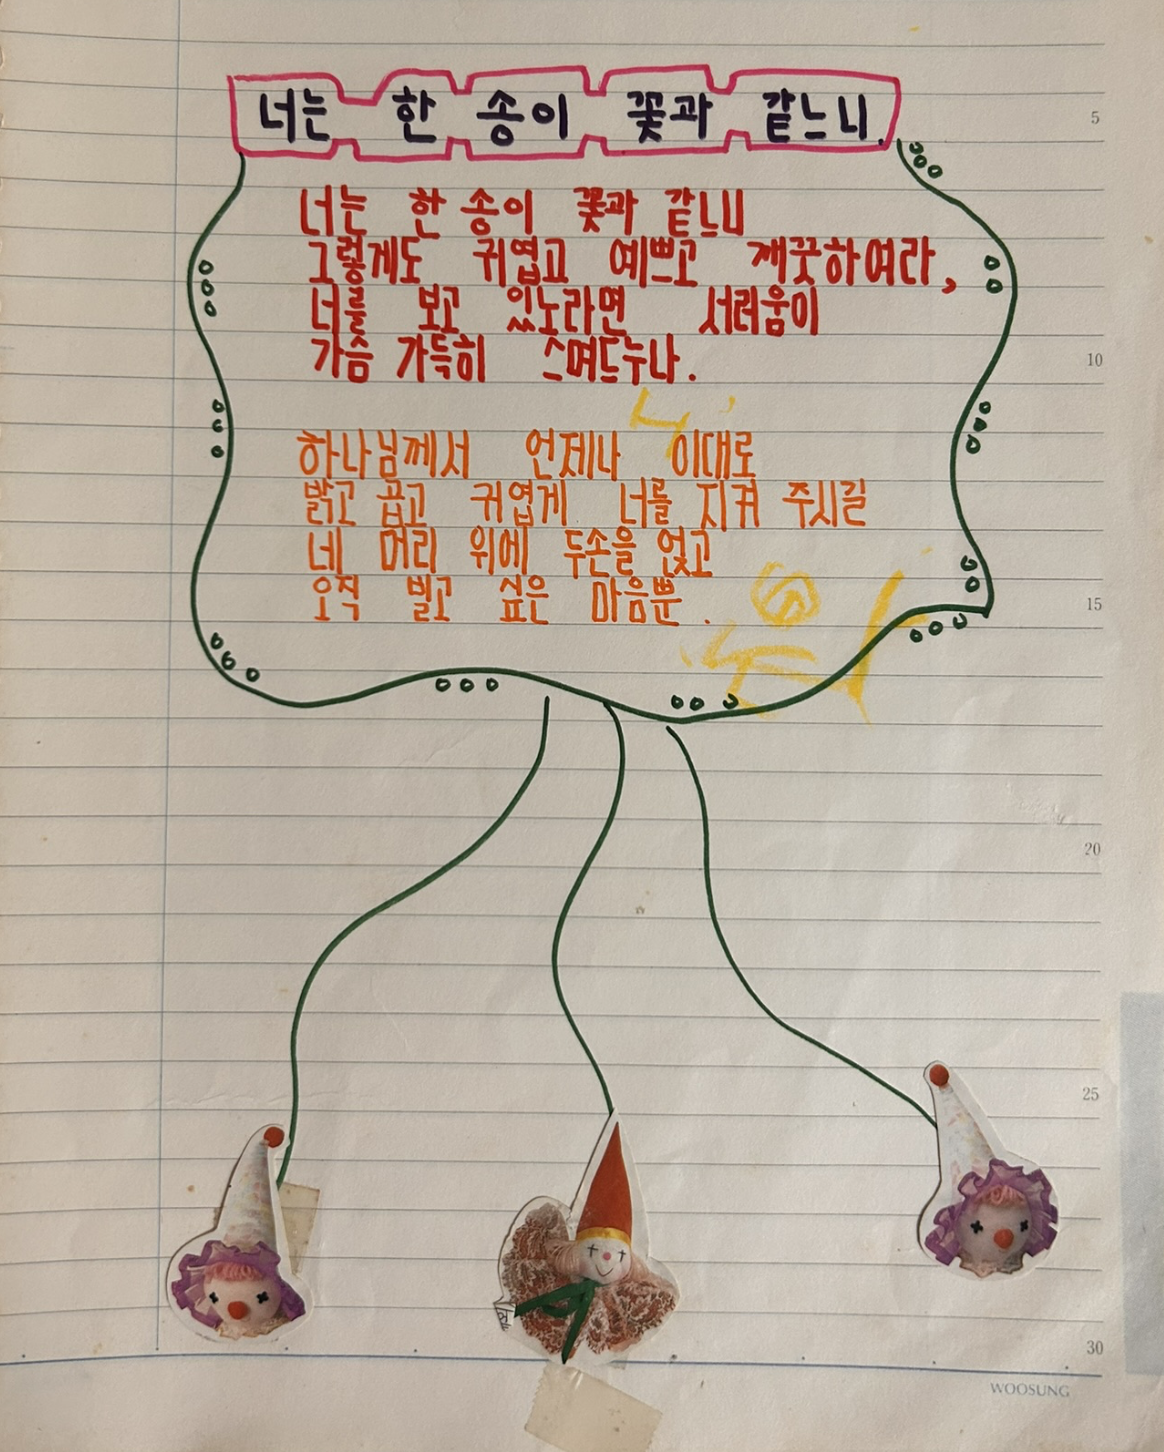 너는 한 송이 꽃과 같느니.
너는 한 송이 꽃과 같느니
그렇게도 귀엽고 예쁘고 깨끗하여라,
너를 보고 있노라면 서러움이
가슴 가득히 스며드누나.
하나님께서 언제나 이대로
밝고 곱고 귀엽게 너를 지켜 주시길
네 머리 위에 두손을 얹고
오직 빌고 싶은 마음뿐.
5
10
15
20
25
30
WOOSUNG